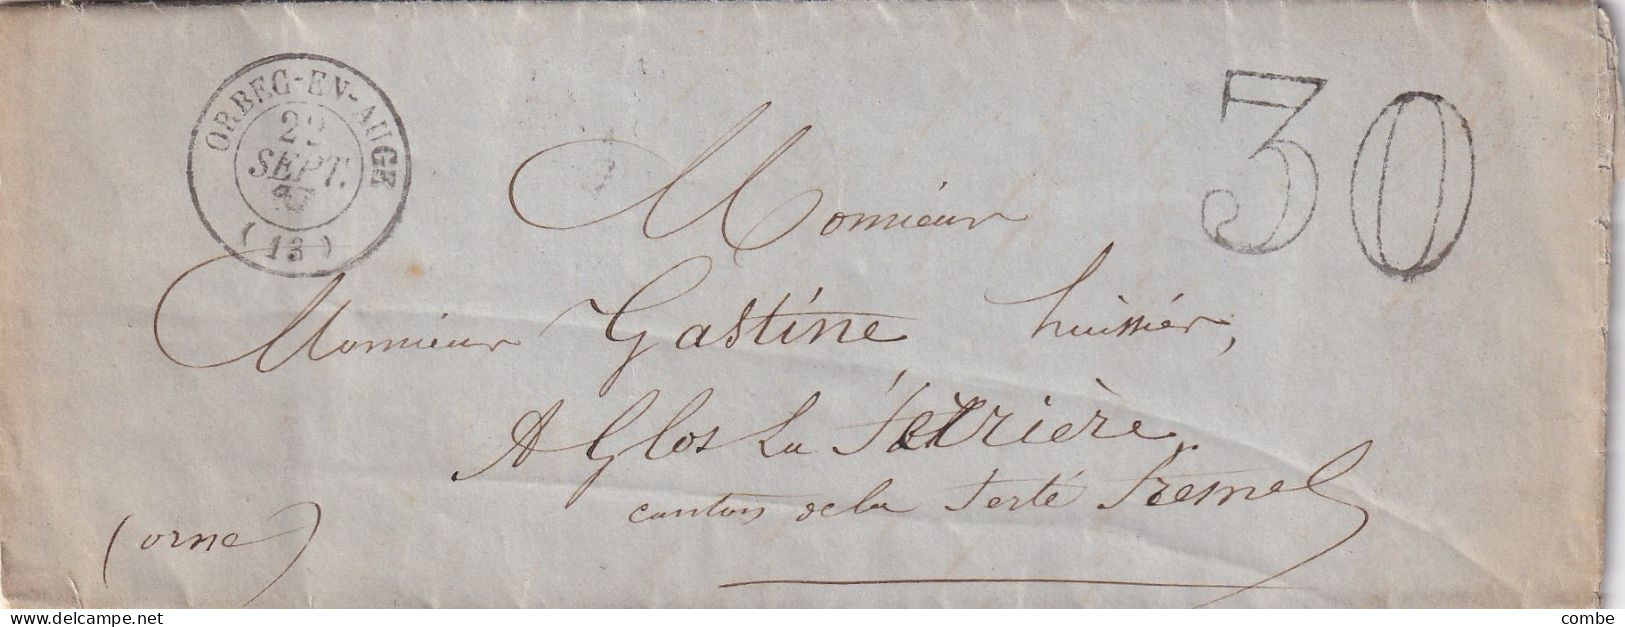 ORBEC-EN-AUGE
SEPT.
(13)
30
Monsieur
Monsieur Gastine huissier,
A Glos La Ferrière
canton de la Ferté Fresnel
(orne)
www.delcampe.net
combe